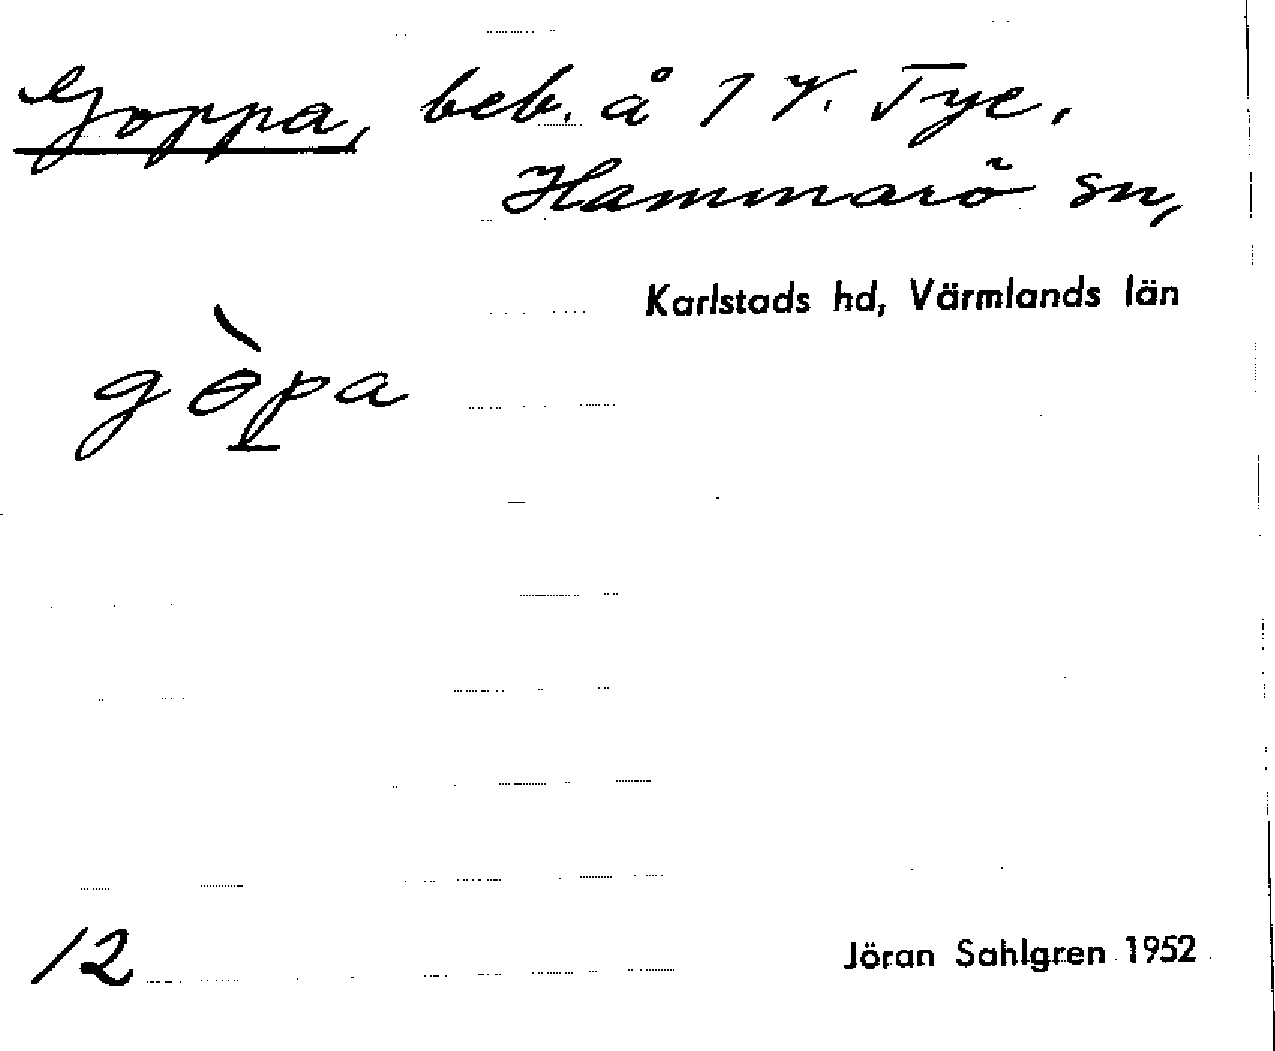 Goppa, beb. å 1 V. Tye.
Hammarö sn,
Karlstads hd, Värmlands län
gɵ̀p̱a
12
Jöran Sahlgren 1952